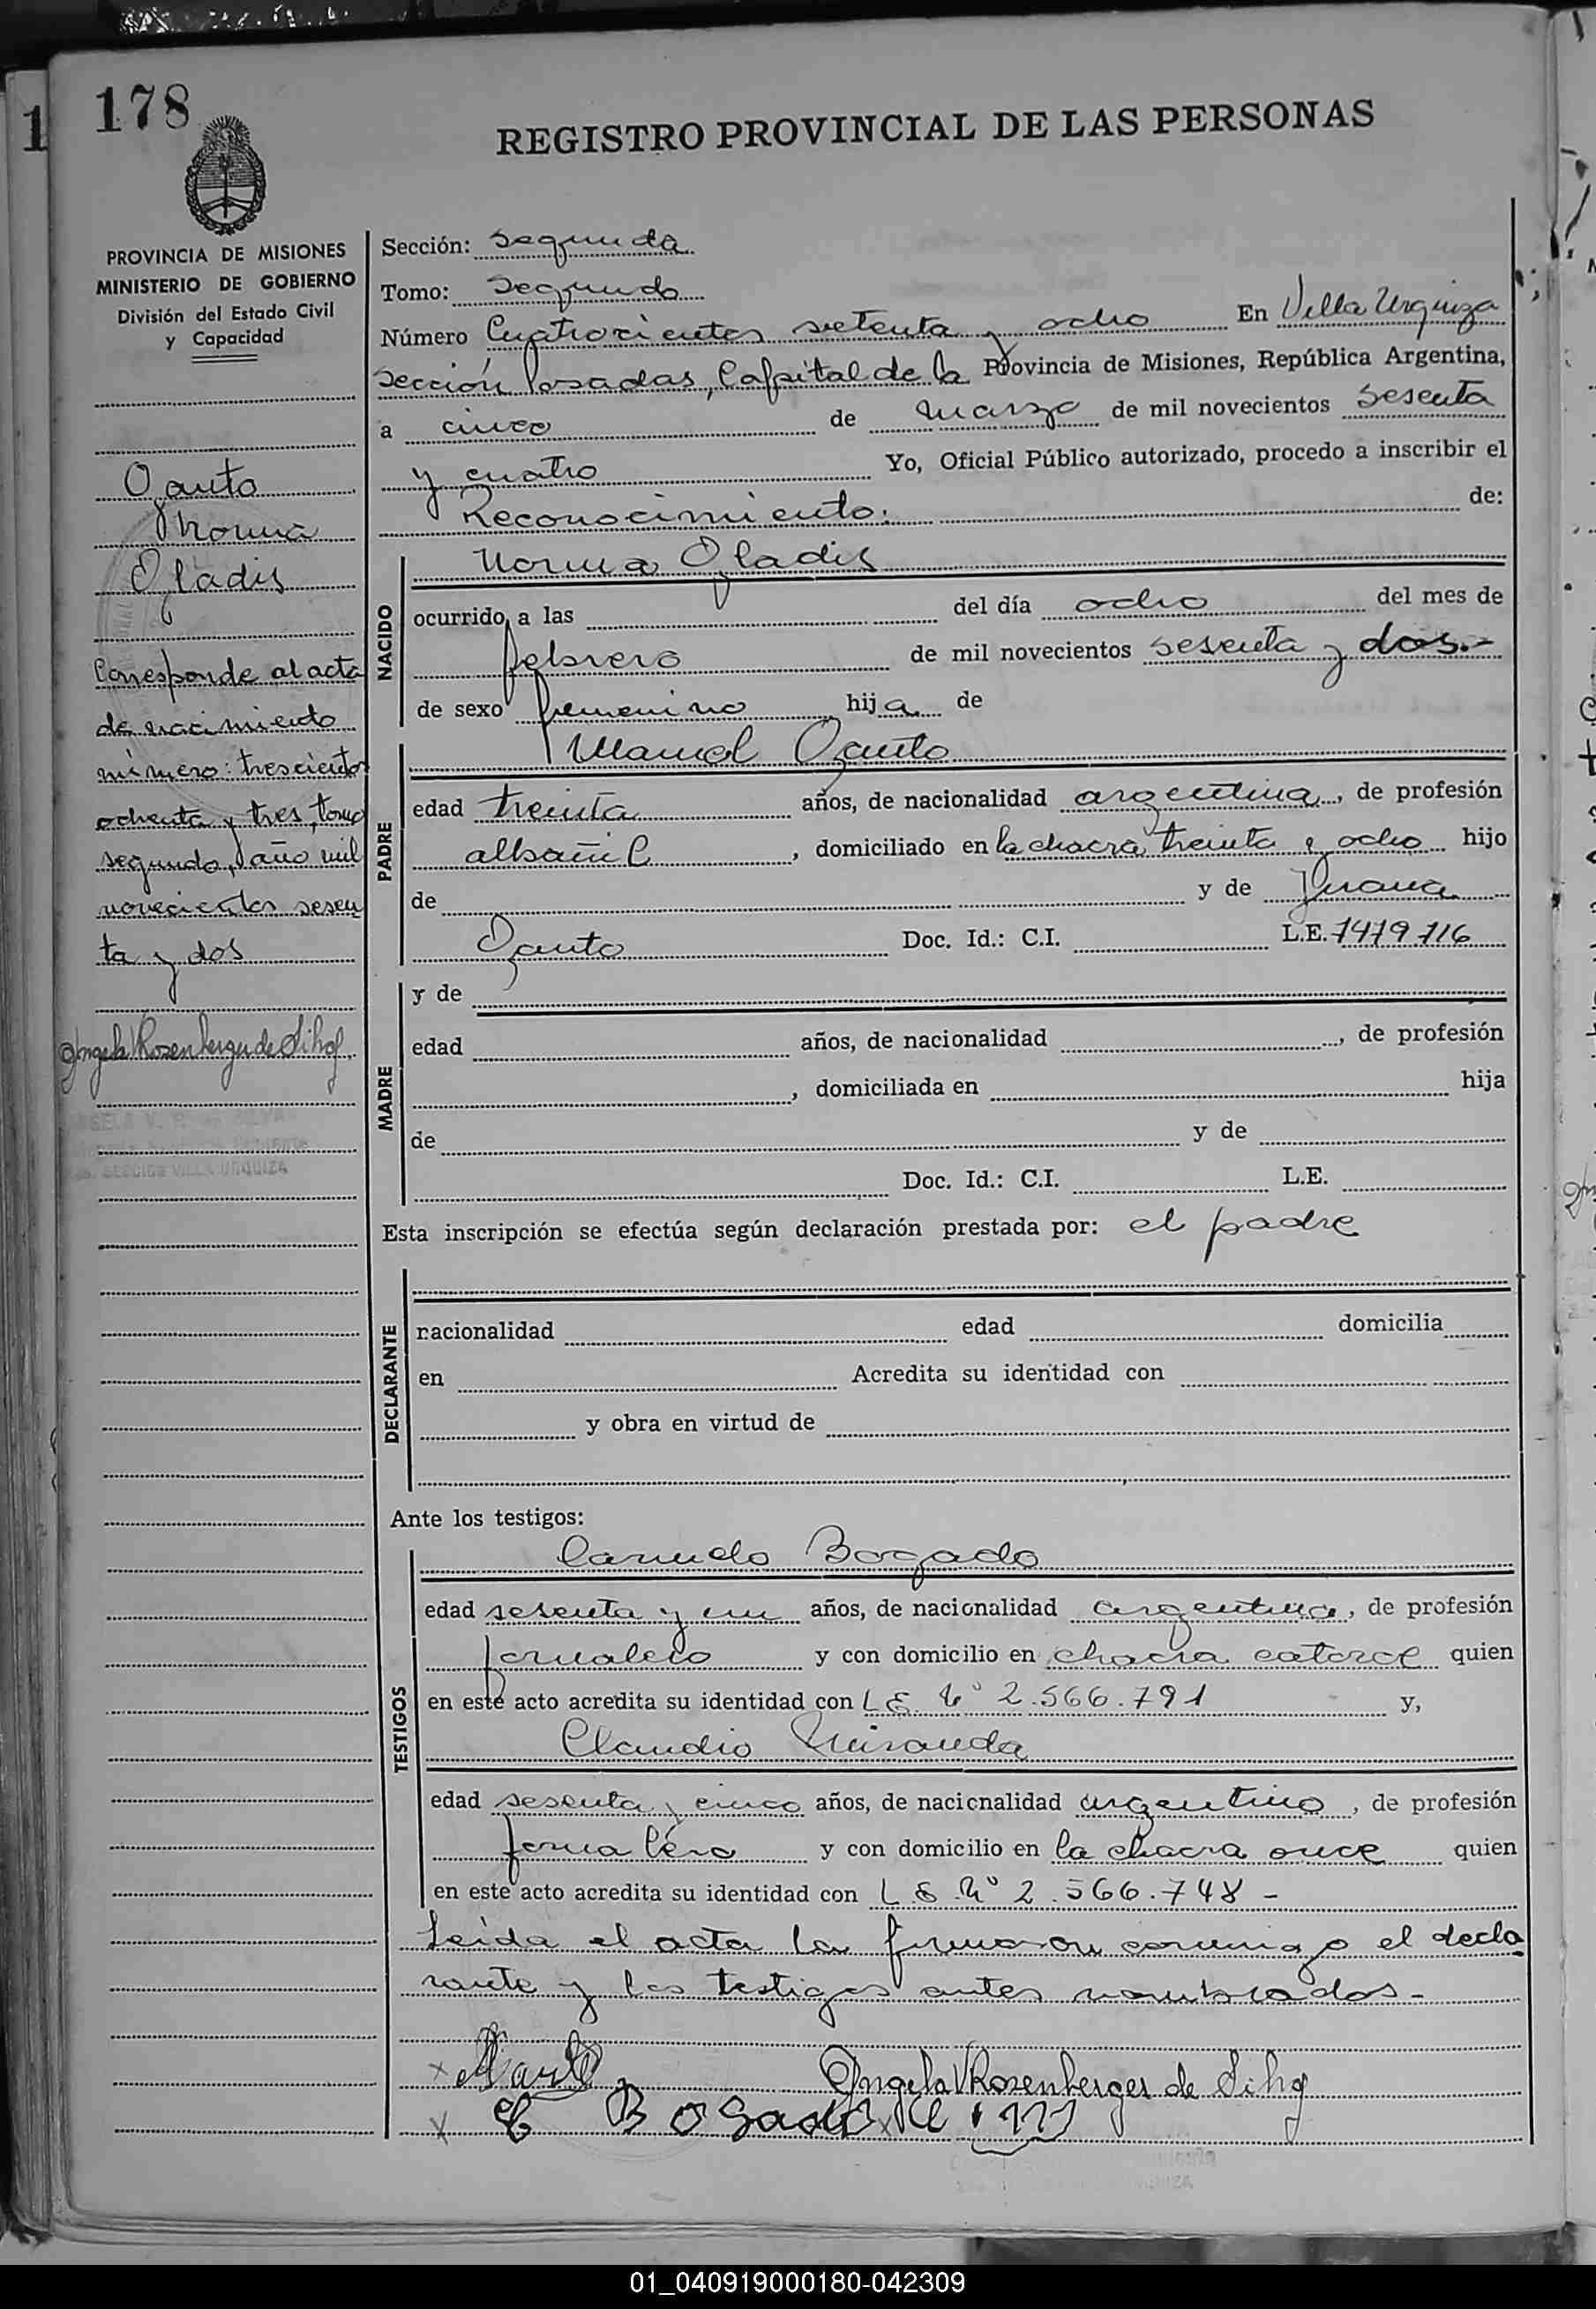 178
REGISTRO PROVINCIAL DE LAS PERSONAS
PROVINCIA DE MISIONES
MINISTERIO DE GOBIERNO
División del Estado Civil
y Capacidad
Norma
Gladis
Corresponde al acta
de nacimiento
número: trescientos
ochenta y tres, tomo
segundo, año mil
novecientos sesen
ta y dos
Angela V Rosenberger de
SECCION VILLA URQUIZA
Sección: segunda
Tomo: Segundo
Número Cuatrocientos setenta y ocho En Villa Urquiza
sección Posadas, Capital de la Provincia de Misiones, República Argentina,
a cinco de marzo de mil novecientos sesenta
y cuatro Yo, Oficial Público autorizado, procedo a inscribir el
Reconocimiento. de:
NACIDO
Norma Gladis
ocurrido a las del día ocho del mes de
febrero de mil novecientos sesenta y dos.-
de sexo femenino hija de
PADRE
Manuel
edad treinta años, de nacionalidad argentina, de profesión
albañil, domiciliado en la chacra treinta y ocho hijo
de y de Juana
Doc. Id.: C.I. L.E. 7479.716
MADRE
y de
edad años, de nacionalidad , de profesión
, domiciliada en hija
de y de
Doc. Id.: C.I. L.E.
Esta inscripción se efectúa según declaración prestada por: el padre
DECLARANTE
nacionalidad edad domicilia
en Acredita su identidad con
y obra en virtud de
Ante los testigos:
TESTIGOS
Carmelo Bogado
edad sesenta y un años, de nacionalidad argentina, de profesión
jornalero y con domicilio en chacra catorce quien
en este acto acredita su identidad con L E. Nº 2.566.791 y,
Claudio Miranda
edad sesenta y cinco años, de nacionalidad argentino, de profesión
jornalero y con domicilio en la chacra once quien
en este acto acredita su identidad con L E Nº 2.566.748 -
Leida el acta la firmaron conmigo el decla
rante y los testigos antes nombrados-
Angela V Rosenberger de
Bogado
01_040919000180-042309